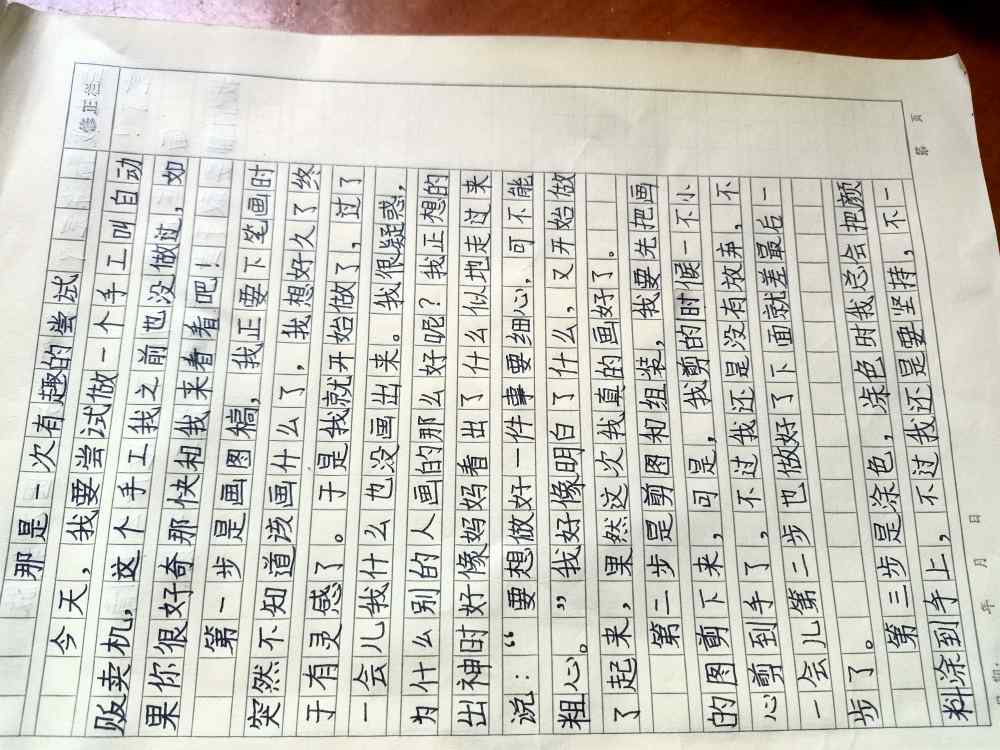 修正栏
那是一次有趣的尝试
今天，我要尝试做一个手工叫自动
贩卖机，这个手工我之前也没做过，如
果你很好奇那快和我来看看吧！
第一步是画图稿，我正要下笔画时
突然不知道该画什么了，我想好久了终
于有灵感了。于是我就开始做了，过了
一会儿我什么也没画出来。我很疑惑，
为什么别的人画的那么好呢？我正想的
出神时好像妈妈看出了什么似地走过来
说：“要想做好一件事要细心，可不能
粗心。”我好像明白了什么，又开始做
了起来，果然这次我真的画好了。
第二步是剪图和组装，我要先把画
的图剪下来，可是，我剪的时候一不小
心剪到手了，不过我还是没有放弃，不
一会儿第二步也做好了下面就差最后一
步了。
第三步是涂色，涂色时我总会把颜
料涂到手上，不过我还是要坚持，不一
第 页
年 月 日